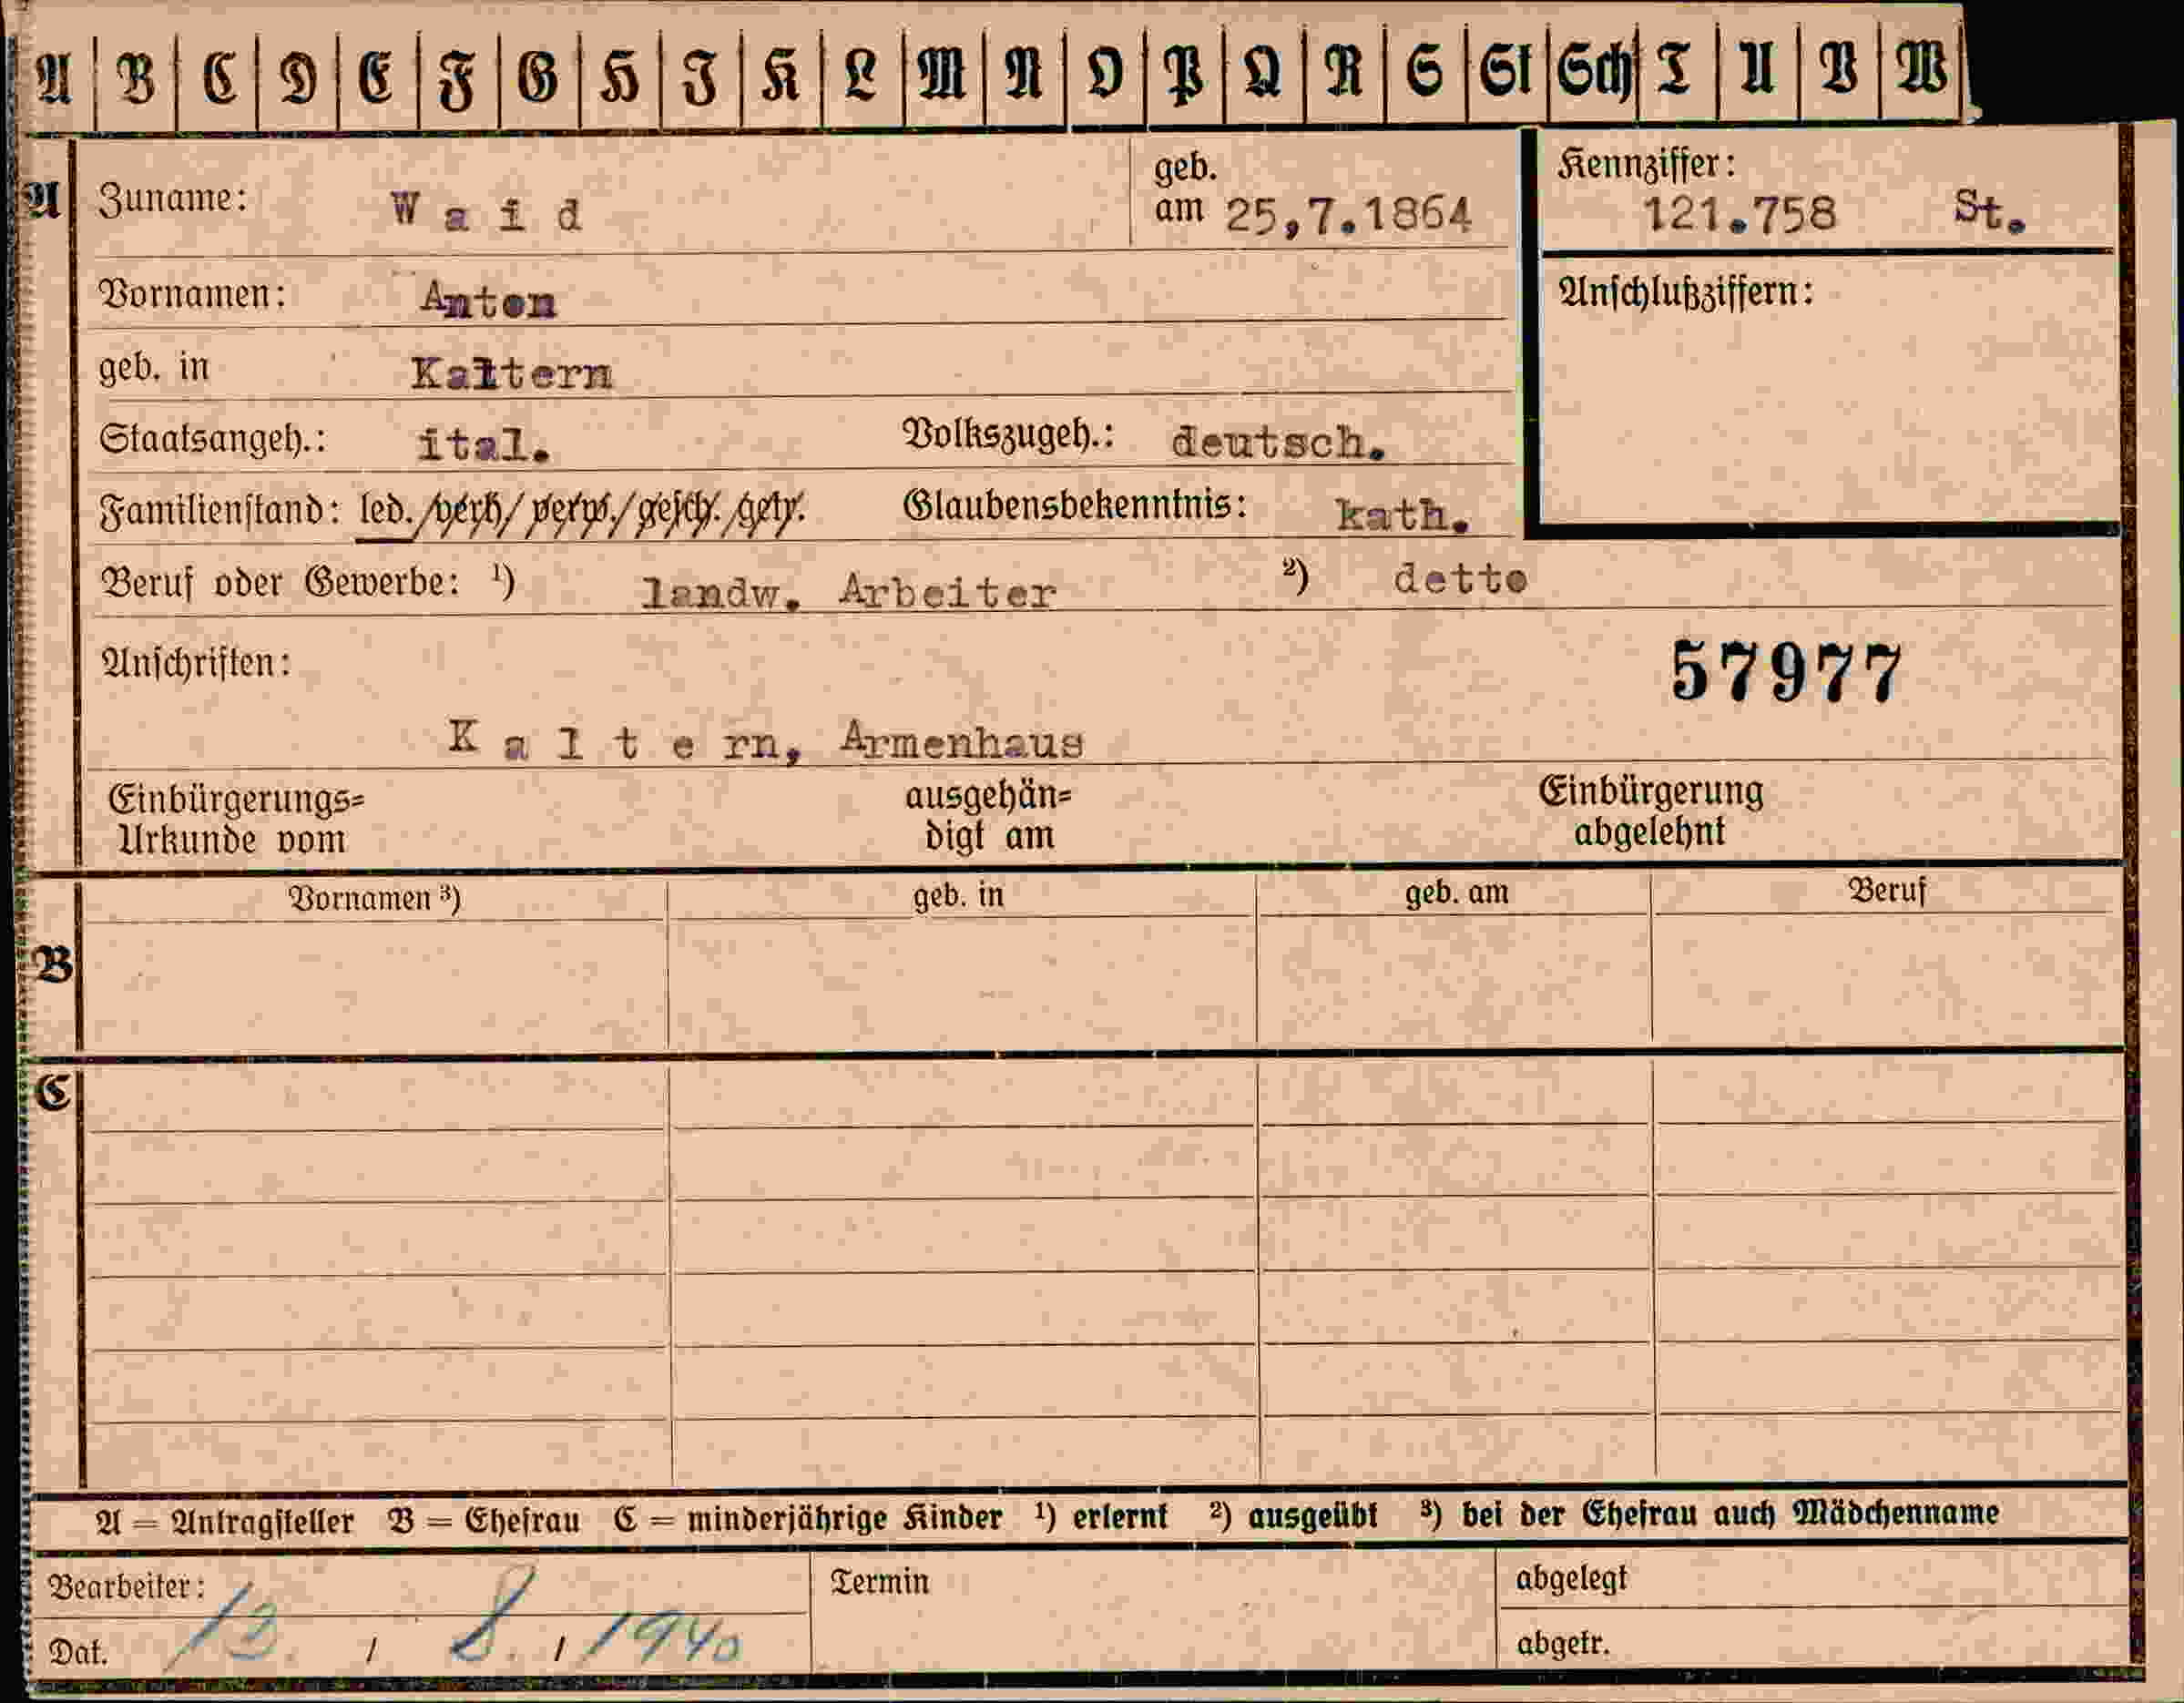 A B C D E F G H J K L M N O P Q R S St Sch T U V W
A
Zuname: Waid
geb. am 25,7.1864
Kennziffer: 121.758 St.
Vornamen: Anton
Anschlußziffern:
geb. in Kaltern
Staatsangeh.: ital. Volkszugeh.: deutsch.
Familienstand: led./verh/verw./gesch./getr. Glaubensbekenntnis: kath.
Beruf oder Gewerbe: ¹) landw. Arbeiter ²) detto
Anschriften:
57977
Kaltern, Armenhaus
Einbürgerungs= ausgehän= Einbürgerung
Urkunde vom digt am abgelehnt
B
Vornamen ³) geb. in geb. am Beruf
C
A = Antragsteller B = Ehefrau C = minderjährige Kinder ¹) erlernt ²) ausgeübt ³) bei der Ehefrau auch Mädchenname
Bearbeiter: Termin abgelegt
Dat. 13. / 8. / 1940 abgetr.